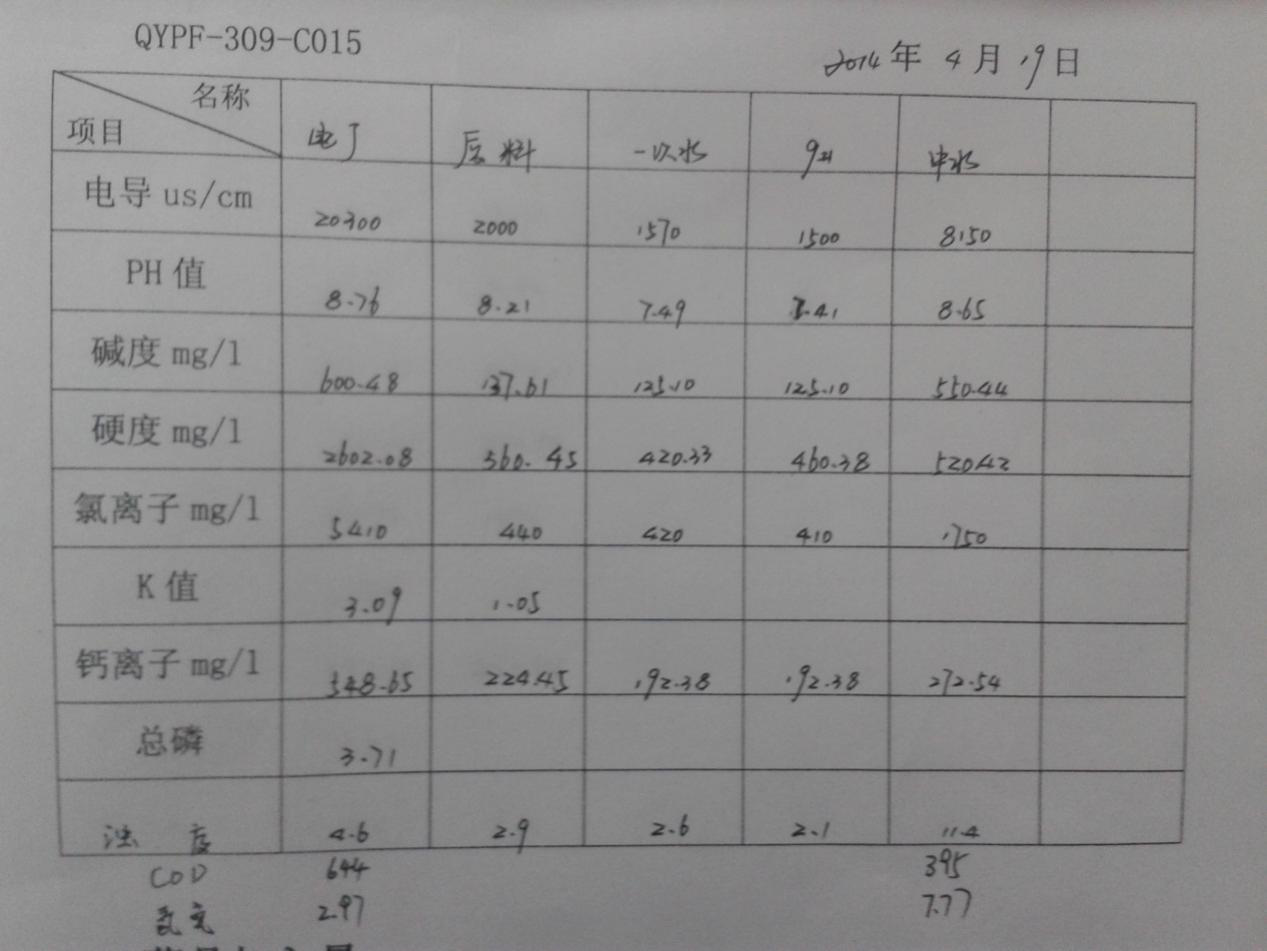 QYPF-309-C015
2014年 4月 19日
名称
项目 电厂 原料 一次水 9# 中水
电导 us/cm 20300 2000 1570 1500 8150
PH 值 8.76 8.21 7.49 7.41 8.65
碱度 mg/l 600.48 137.61 125.10 125.10 550.44
硬度 mg/l 2602.08 560.45 420.33 460.38 520.42
氯离子 mg/l 5410 440 420 410 1750
K 值 3.09 1.05
钙离子 mg/l 348.65 224.45 192.38 192.38 272.54
总磷 3.71
浊 度 4.6 2.9 2.6 2.1 11.4
COD 644 395
氨氮 2.97 7.77